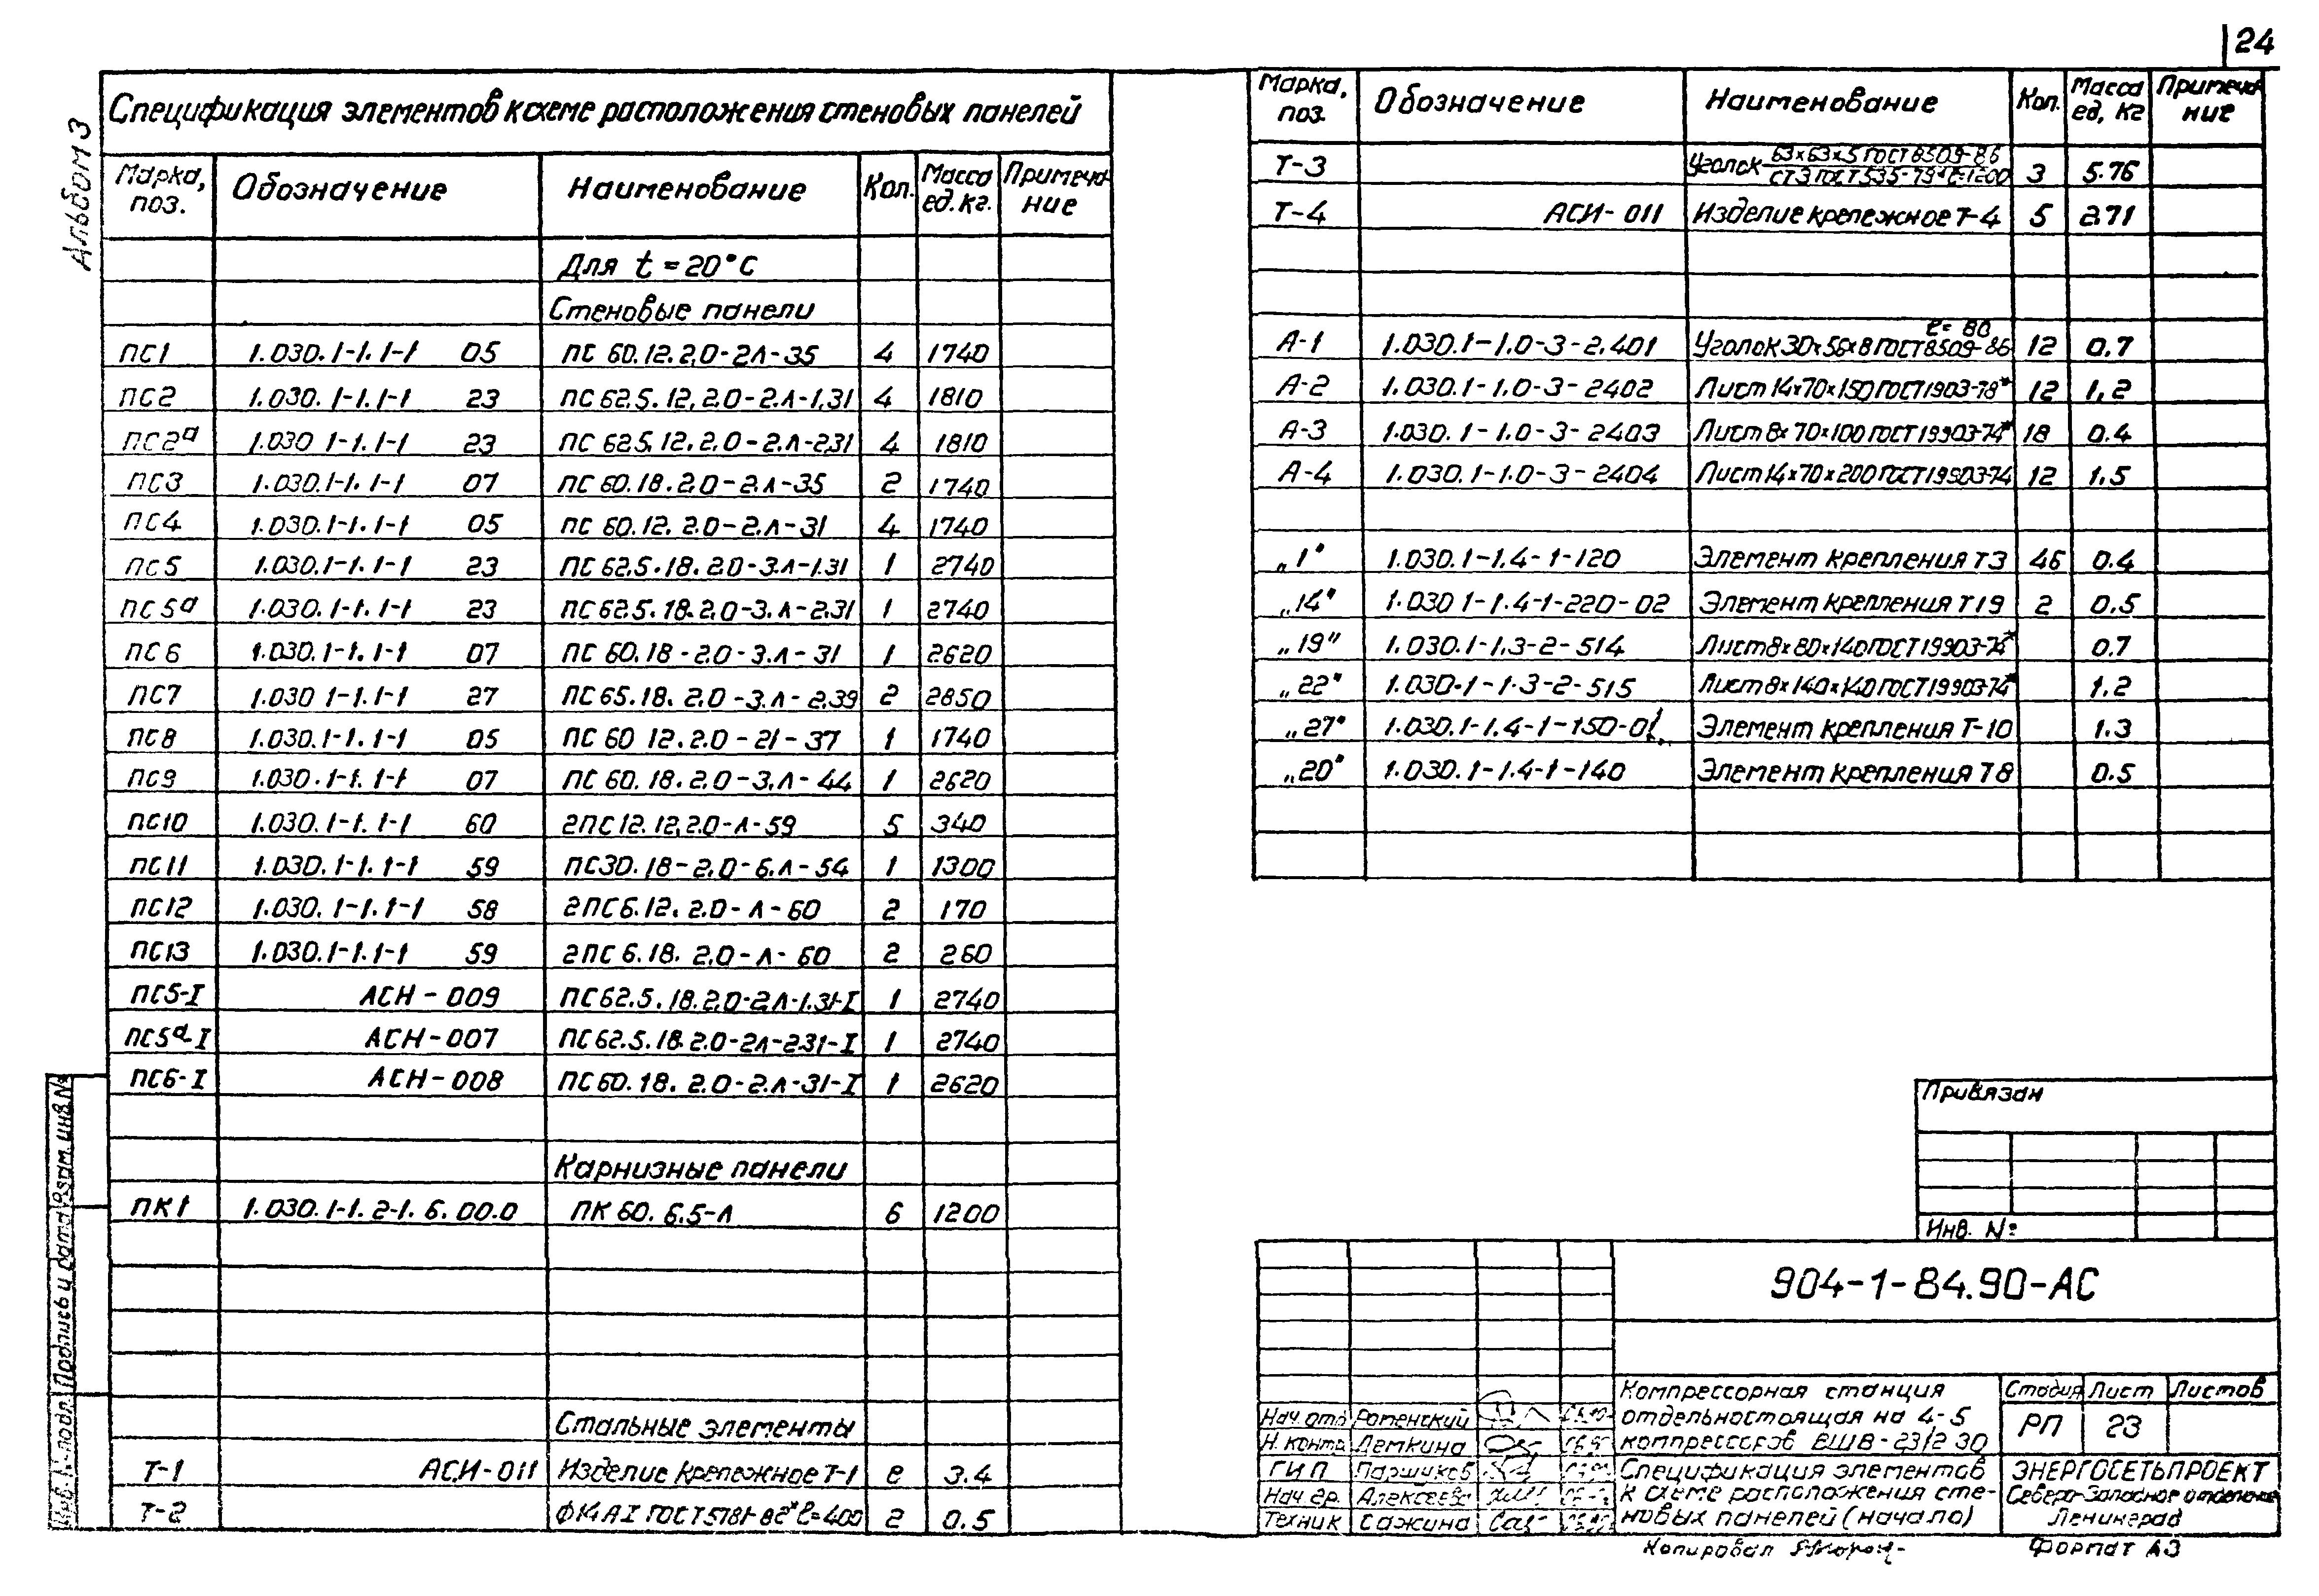 24
Альбом 3
Спецификация элементов к схеме расположения стеновых панелей
Марка, поз. Обозначение Наименование Кол. Масса ед. кг. Примечание
Для t = 20°С
Стеновые панели
ПС1 1.030.1-1.1-1 05 ПС 60.12.2.0-2Л-35 4 1740
ПС2 1.030.1-1.1-1 23 ПС 62.5.12.2.0-2.Л-1.31 4 1810
ПС2а 1.030 1-1.1-1 23 ПС 62.5.12.2.0-2.Л-2.31 4 1810
ПС3 1.030.1-1.1-1 07 ПС 60.18.2.0-2.Л-35 2 1740
ПС4 1.030.1-1.1-1 05 ПС 60.12.2.0-2.Л-31 4 1740
ПС5 1.030.1-1.1-1 23 ПС 62.5.18.2.0-3.Л-1.31 1 2740
ПС5а 1.030.1-1.1-1 23 ПС 62.5.18.2.0-3.Л-2.31 1 2740
ПС6 1.030.1-1.1-1 07 ПС 60.18-2.0-3.Л-31 1 2620
ПС7 1.030 1-1.1-1 27 ПС 65.18.2.0-3.Л-2.39 2 2850
ПС8 1.030.1-1.1-1 05 ПС 60 12.2.0-21-37 1 1740
ПС9 1.030.1-1.1-1 07 ПС 60.18.2.0-3.Л-44 1 2620
ПС10 1.030.1-1.1-1 60 2ПС12.12.2.0-Л-59 5 340
ПС11 1.030.1-1.1-1 59 ПС30.18-2.0-6.Л-54 1 1300
ПС12 1.030.1-1.1-1 58 2ПС6.12.2.0-Л-60 2 170
ПС13 1.030.1-1.1-1 59 2ПС 6.18.2.0-Л-60 2 260
ПС5-I АСН-009 ПС62.5.18.2.0-2Л-1.31-I 1 2740
ПС5а-I АСН-007 ПС62.5.18.2.0-2Л-2.31-I 1 2740
ПС6-I АСН-008 ПС60.18.2.0-2.Л-31-I 1 2620
Карнизные панели
ПК1 1.030.1-1.2-1.6.00.0 ПК 60.6.5-Л 6 1200
Стальные элементы
Т-1 АСИ-011 Изделие крепежное Т-1 3.4
Т-2 Ф14АI ГОСТ 5781-82* ℓ=400 2 0.5
Инв. № подл. Подпись и дата Взам. инв №
Марка, поз. Обозначение Наименование Кол. Масса ед, кг Примечание
Т-3 Уголок 63×63×5 ГОСТ 8509-86 3 5.76
Ст3 ГОСТ 535-79* ℓ=1200
Т-4 АСИ-011 Изделие крепежное Т-4 5 2.71
ℓ= 80
А-1 1.030.1-1.0-3-2.401 Уголок 30×56×8 ГОСТ 8509-86 12 0.7
А-2 1.030.1-1.0-3-2402 Лист 14×70×150 ГОСТ 1903-78* 12 1.2
А-3 1.030.1-1.0-3-2403 Лист 8×70×100 ГОСТ 19903-74* 18 0.4
А-4 1.030.1-1.0-3-2404 Лист 14×70×200 ГОСТ 19903-74 12 1.5
„1" 1.030.1-1.4-1-120 Элемент крепления Т3 46 0.4
„14" 1.030 1-1.4-1-220-02 Элемент крепления Т19 2 0.5
„19" 1.030.1-1.3-2-514 Лист 8×80×140 ГОСТ 19903-74* 0.7
„22" 1.030.1-1.3-2-515 Лист 8×140×140 ГОСТ 19903-74* 1.2
„27" 1.030.1-1.4-1-150-01 Элемент крепления Т-10 1.3
„20" 1.030.1-1.4-1-140 Элемент крепления Т8 0.5
Привязан
Инв. №
904-1-84.90-АС
Компрессорная станция
отдельностоящая на 4-5
компрессоров ВШВ-23/2 30
Стадия Лист Листов
РП 23
Нач. отд Ротенский
Н. контр Лемкина
ГИП Паршуков
Нач. гр. Алексеева
Техник Сажина
Спецификация элементов
к схеме расположения сте-
новых панелей (начало)
ЭНЕРГОСЕТЬПРОЕКТ
Северо-Западное отделение
Ленинград
Копировал
Формат А3